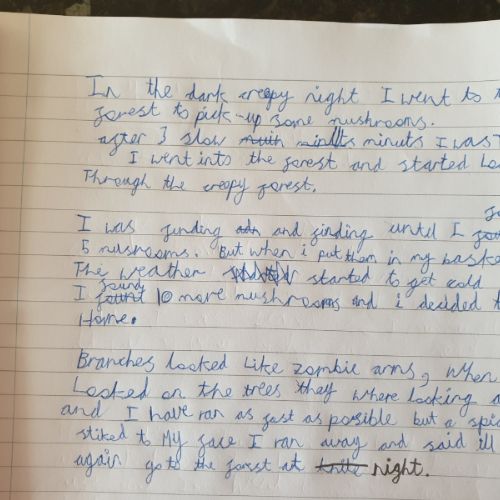 In the dark creepy night I went to
forest to pick-up some mushrooms.
after 3 slow minuts I was
I went into the forest and started
Through the creepy forest.
I was finding and finding until I
5 mushrooms. But when i put them in my
The weather started to get cold
I found 10 more mushrooms and i decided
Home.
Branches looked Like zombie arms, when
Looked on the trees they where looking
and I have ran as fast as possible but a
stiked to My face I ran away and said ill
again go to the forest at night.